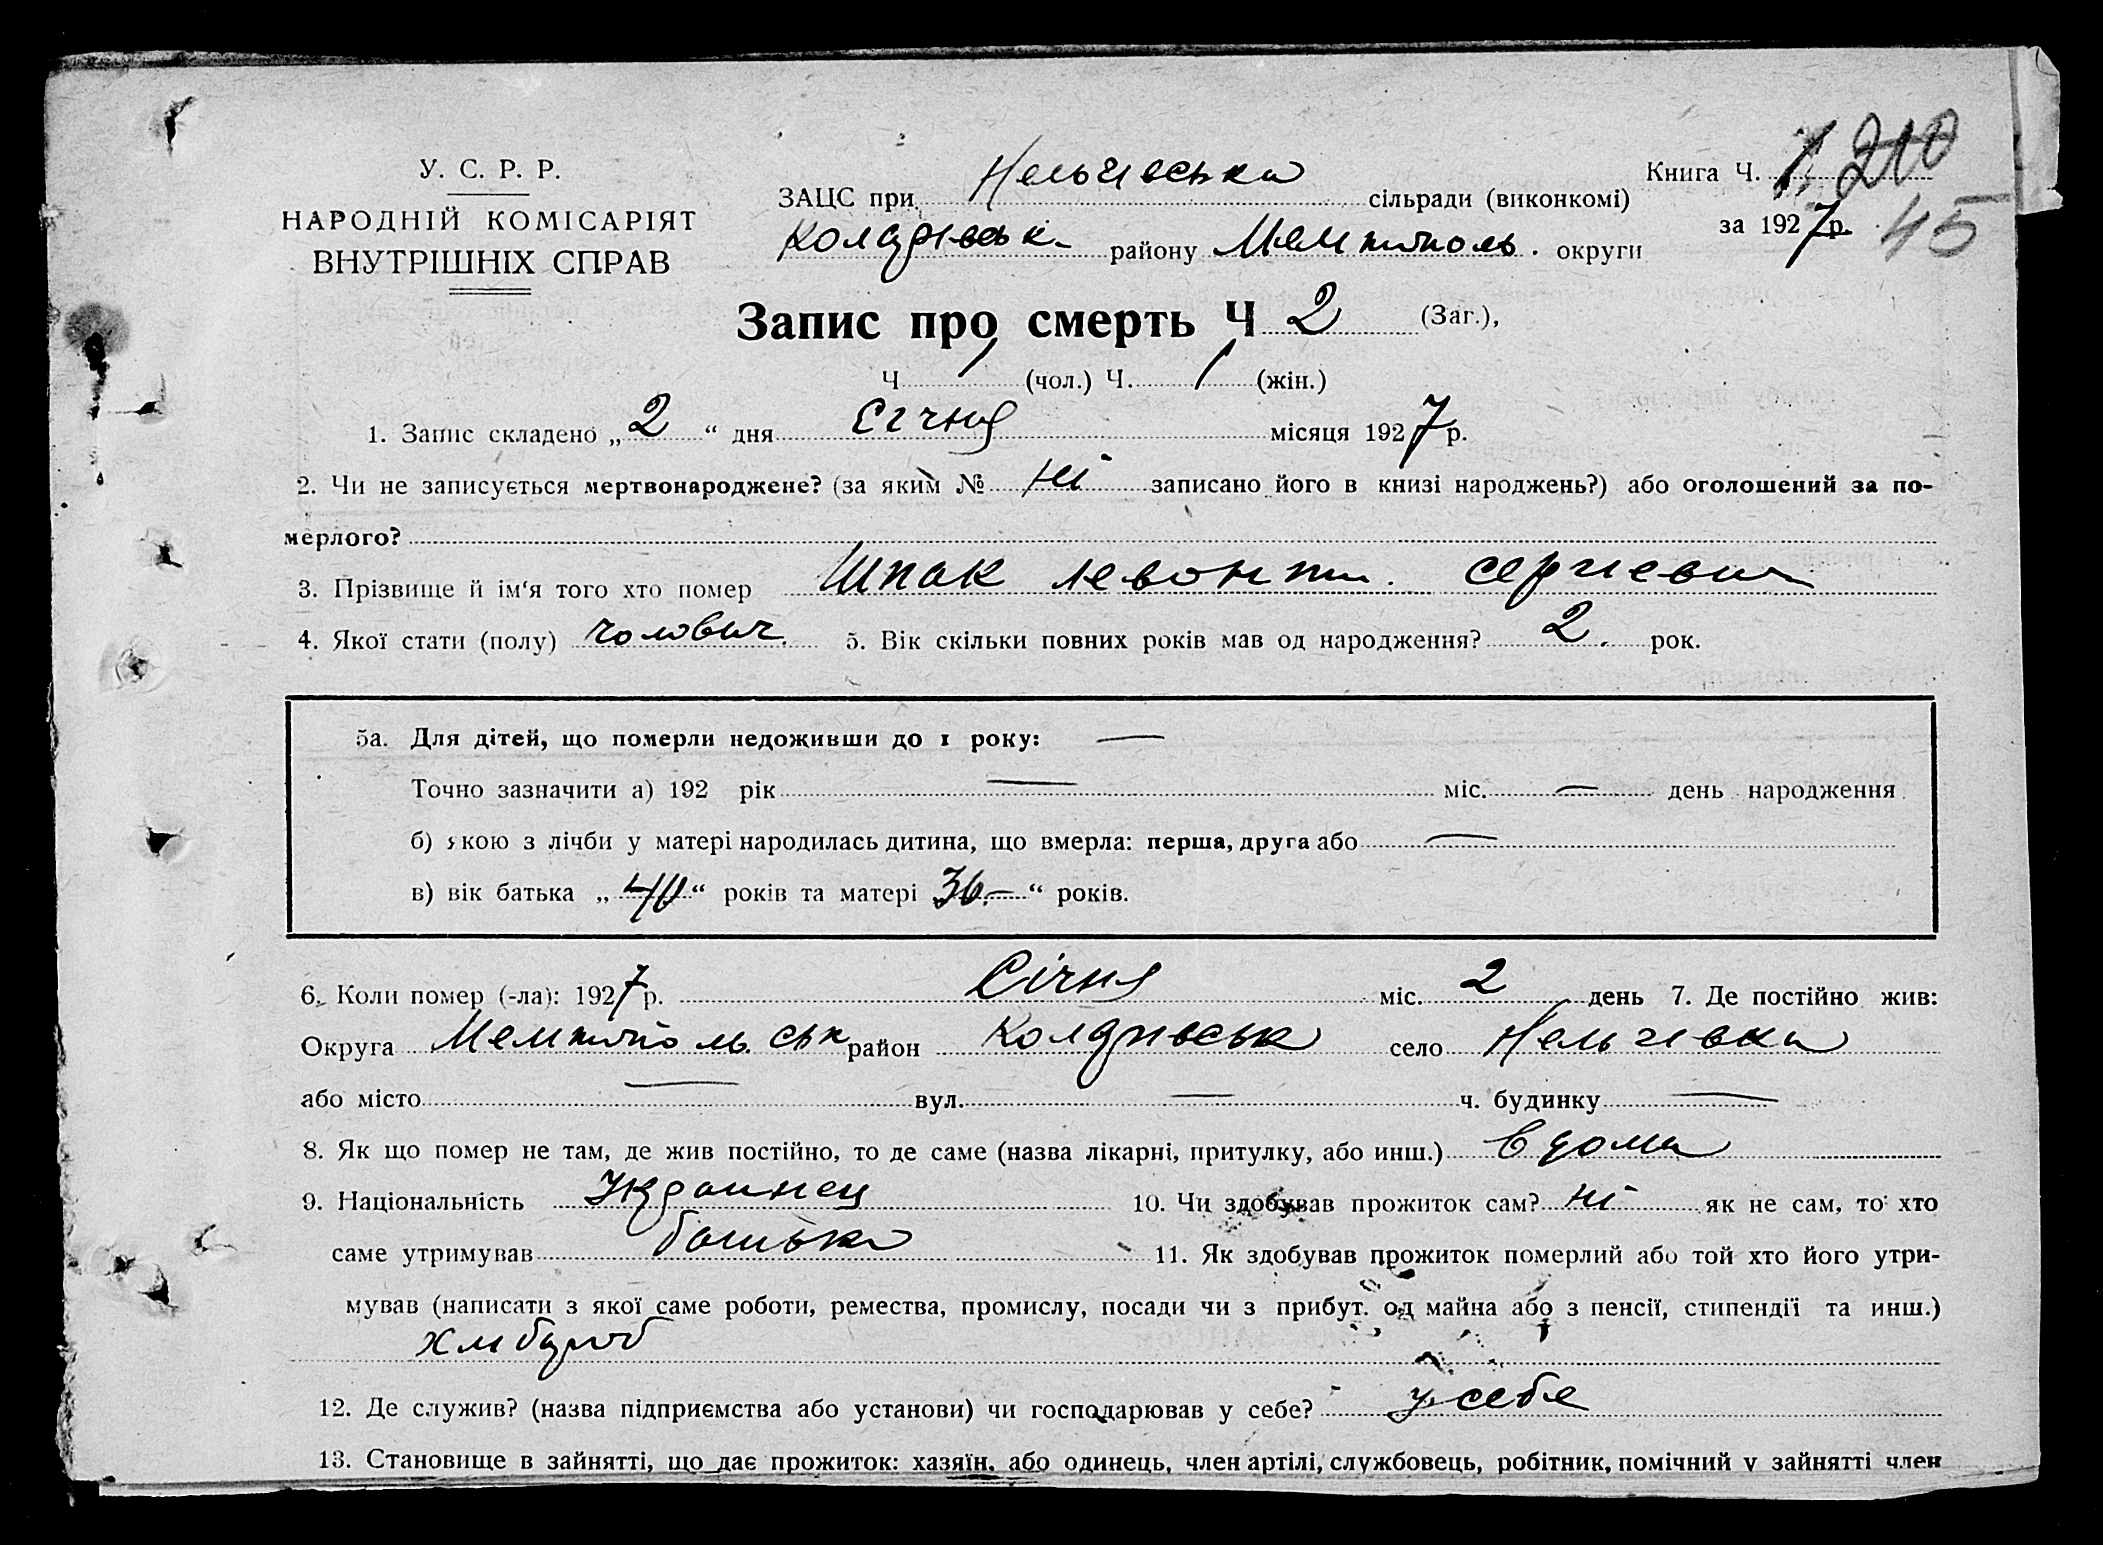 У. С. Р. Р.
НАРОДНІЙ КОМІСАРІЯТ
ВНУТРІШНІХ СПРАВ
ЗАЦС при Нельгівська сільради (виконкомі)
району Мелитополь. округи
Книга Ч. 1. 210
за 1927 р. 45
Запис про смерть Ч 2 (Заг.),
Ч 1 (чол.) Ч. 1 (жін.)
1. Запис складено „ 2 “ дня Січня місяця 1927 р.
2. Чи не записується мертвонароджене? (за яким № ні записано його в книзі народжень?) або оголошений за по-
мерлого?
3. Прізвище й ім‘я того хто помер Шпак Левонти. Сергиевич
4. Якої стати (полу) Чолович. 5. Вік скільки повних років мав од народження? 2. рок.
5а. Для дітей, що померли недоживши до 1 року: —
Точно зазначити а) 192 рік — міс. — день народження
б) якою з лічби у матері народилась дитина, що вмерла: перша, друга або —
в) вік батька „ 40 “ років та матері 36. — “ років.
6. Коли помер (-ла): 1927 р. Січня міс. 2 день 7. Де постійно жив:
Округа Мелитопольськ район село Нельгівка
або місто — вул. — ч. будинку —
8. Як що помер не там, де жив постійно, то де саме (назва лікарні, притулку, або инш.) в дома
9. Національність Украинец 10. Чи здобував прожиток сам? ні як не сам, то хто
саме утримував батька 11. Як здобував прожиток померлий або той хто його утри-
мував (написати з якої саме роботи, ремества, промислу, посади чи з прибут. од майна або з пенсії, стипендії та инш.)
хлібороб
12. Де служив? (назва підприємства або установи) чи господарював у себе? у себе
13. Становище в зайнятті, що дає прожиток: хазяїн, або одинець, член артілі, службовець, робітник, помічний у зайнятті член